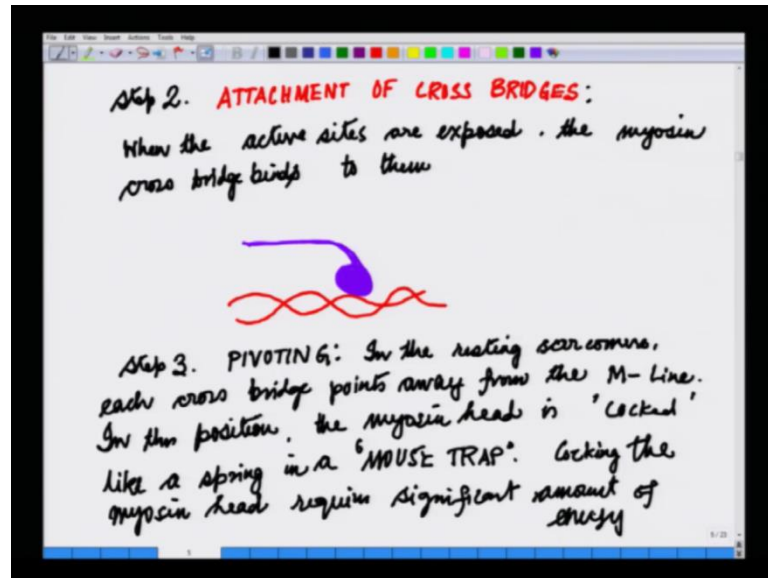 File Edit View Insert Actions Tools Help
Step 2. ATTACHMENT OF CROSS BRIDGES:
When the active sites are exposed. the myosin
cross bridge binds to them
Step 3. PIVOTING: In the resting sarcomere,
each cross bridge points away from the M-Line.
In this position, the myosin head is 'Cocked'
like a spring in a "MOUSE TRAP". Cocking the
myosin head require significant amount of
energy
5/23
1